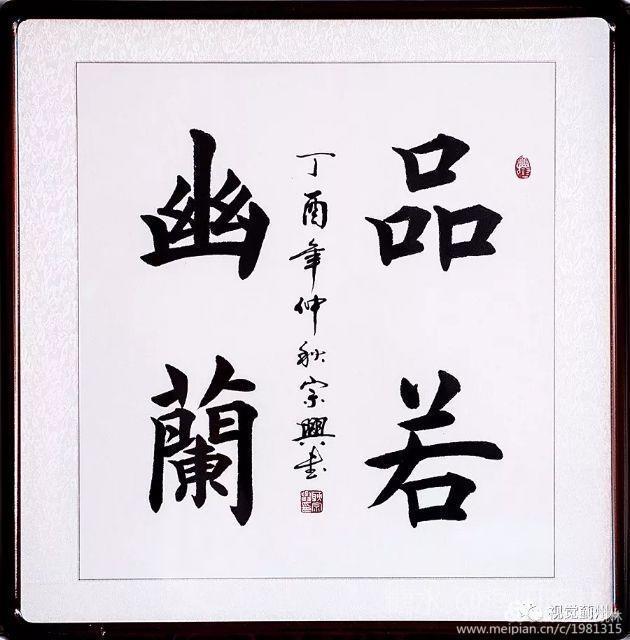 品若
幽蘭
丁酉年仲秋宗興书
视觉蓟州
www.meipian.cn/c/1981315